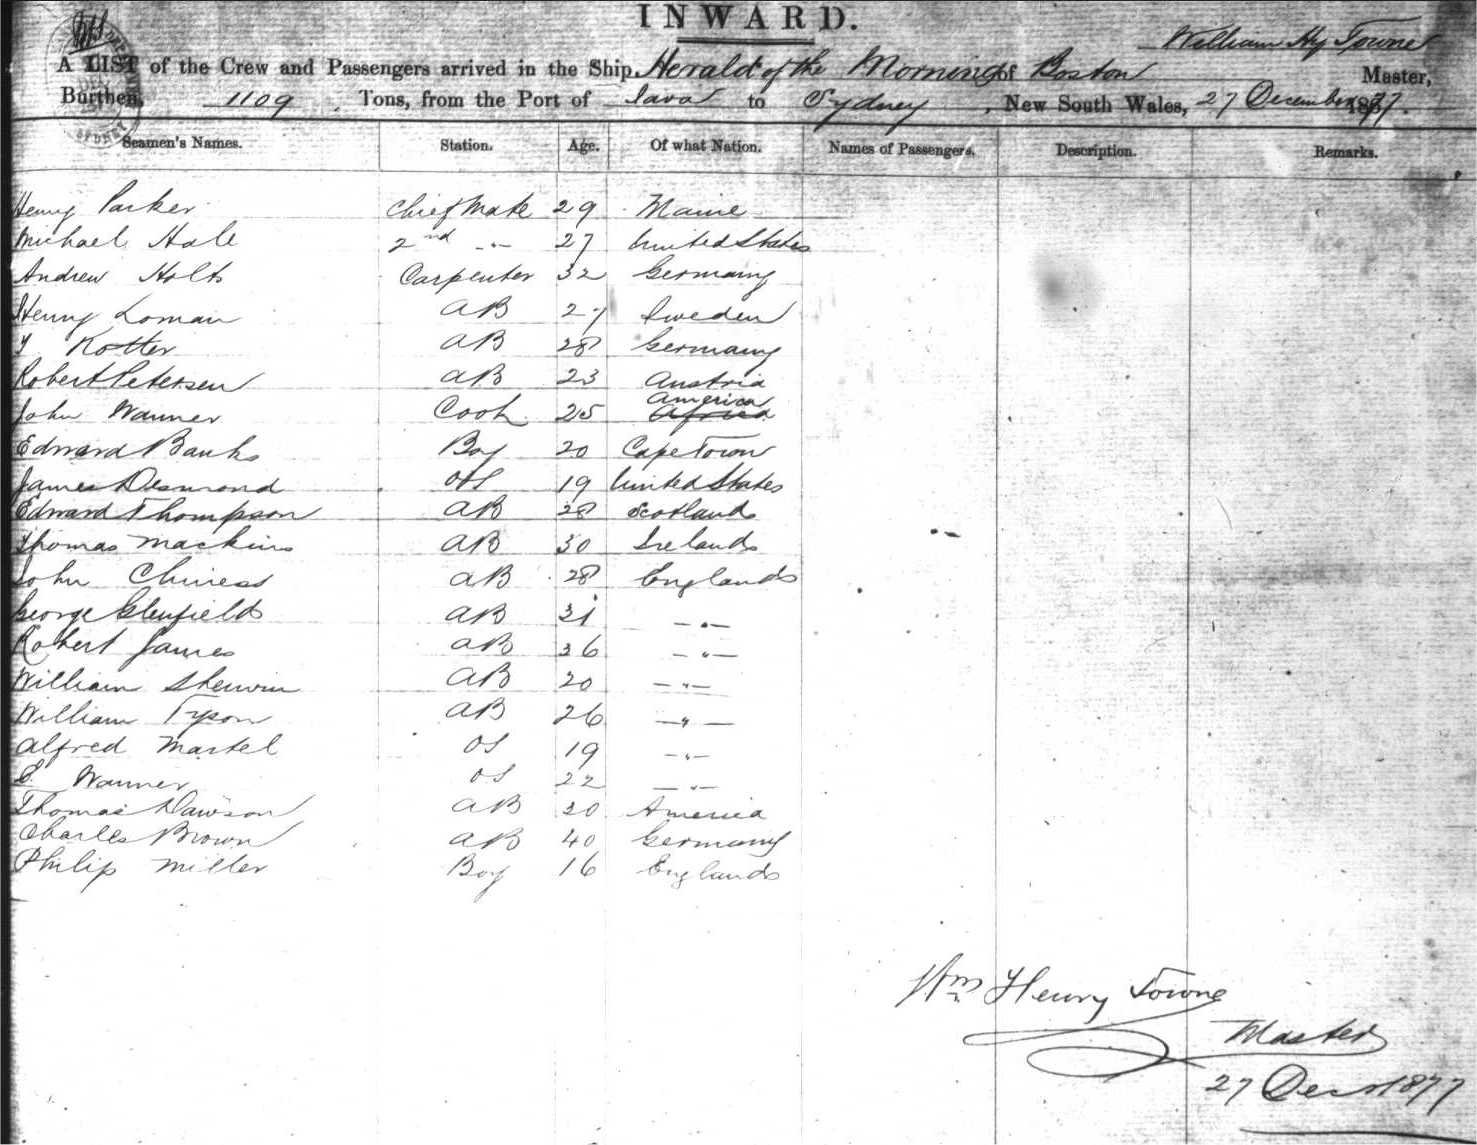 INWARD.
William Hy Towne
A LIST of the Crew and Passengers arrived in the Ship Herald of the Morning of Boston Master,
Burthen, 1109 Tons, from the Port of Java to Sydney, New South Wales, 27 December 1877.
Seamen's Names. Station. Age. Of what Nation. Names of Passengers. Description. Remarks.
Henry Parker Chief Mate 29 Maine
Michael Hale 2nd -"- 27 United States
Andrew Holts Carpenter 32 Germany
Henry Loman AB 27 Sweden
Kotter AB 28 Germany
Robert Petersen AB 23 Austria
America
John Wanner Cook 25 Africa
Edward Banks Boy 20 Cape Town
James Desmond OS 19 United States
Edward Thompson AB 28 Scotland
Thomas Mackins AB 30 Ireland
John Chiness AB 28 England
George Glenfield AB 31 -"-
Robert James AB 36 -"-
William Sherwin AB 20 -"-
William Tyson AB 26 -"-
Alfred Martel OS 19 -"-
Wanner OS 22 -"-
Thomas Dawson AB 30 America
Charles Brown AB 40 Germany
Philip Miller Boy 16 England
Wm Henry Towne
Master
27 Decr 1877